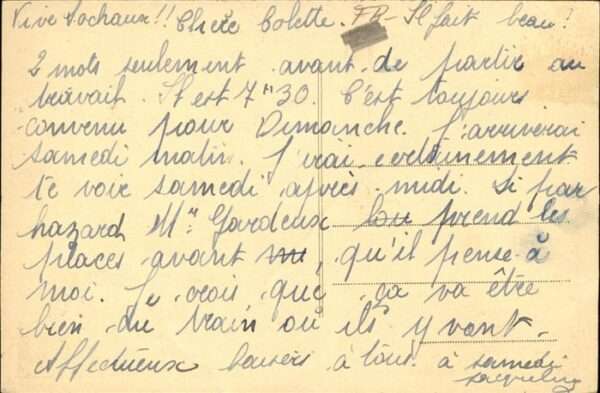 Vive Sochaux!! Chère Colette. FB- Il fait beau!
2 mots seulement avant de partir au
travail. Il est 7h30. C'est toujours
convenu pour Dimanche. J'arriverai
samedi matin. J'irai certainement
te voir samedi après-midi. Si par
hazard Mr Gardeux prend les
places avant, qu'il pense à
moi. Je crois que ça va être
bien du train où ils y vont.
Affectueux baisers à tous. à samedi
Jacqueline